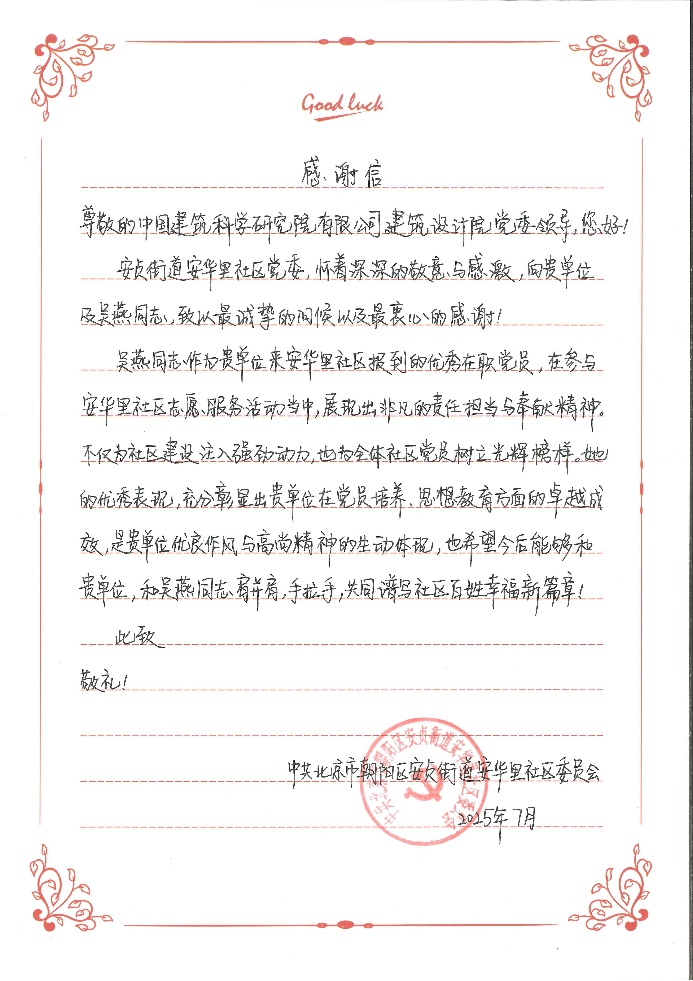 Good luck
感谢信
尊敬的中国建筑科学研究院有限公司建筑设计院党委领导,您好!
安贞街道安华里社区党委,怀着深深的敬意与感激,向贵单位
及吴燕同志,致以最诚挚的问候以及最衷心的感谢!
吴燕同志作为贵单位来安华里社区报到的优秀在职党员,在参与
安华里社区志愿服务活动当中,展现出非凡的责任担当与奉献精神。
不仅为社区建设注入强劲动力,也为全体社区党员树立光辉榜样。她
的优秀表现,充分彰显出贵单位在党员培养、思想教育方面的卓越成
效,是贵单位优良作风与高尚精神的生动体现,也希望今后能够和
贵单位,和吴燕同志肩并肩,手拉手,共同谱写社区百姓幸福新篇章!
此致
敬礼!
中共北京市朝阳区安贞街道安华里社区委员会
2025年7月
中共北京市朝阳区安贞街道安华里社区委员会